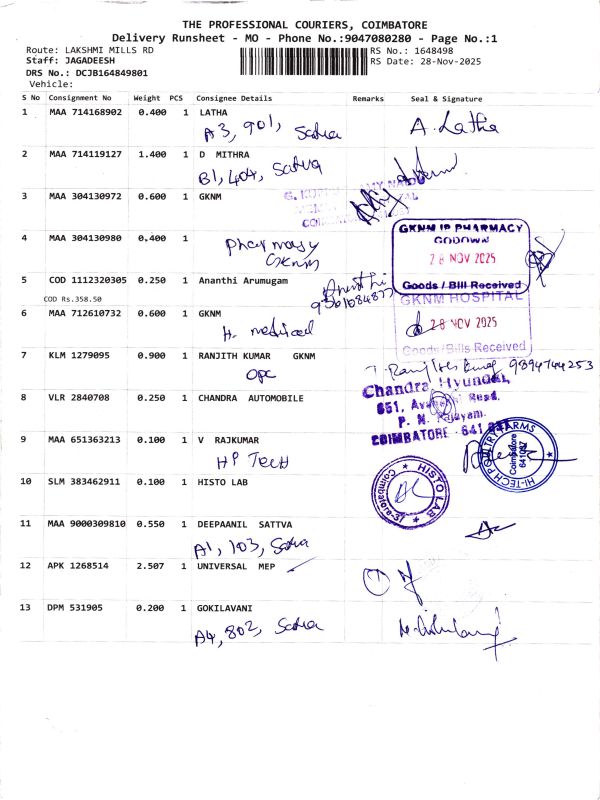 THE PROFESSIONAL COURIERS, COIMBATORE
Delivery Runsheet - MO - Phone No.:9047080280 - Page No.:1
Route: LAKSHMI MILLS RD
RS No.: 1648498
Staff: JAGADEESH
RS Date: 28-Nov-2025
DRS No.: DCJB164849801
Vehicle:
S No Consignment No Weight PCS Consignee Details Remarks Seal & Signature
1 MAA 714168902 0.400 1 LATHA
A3, 901, Sattva
A. Latha
2 MAA 714119127 1.400 1 D MITHRA
B1, 404, Sattva
3 MAA 304130972 0.600 1 GKNM
4 MAA 304130980 0.400 1
Pharmasy
GKNM
GKNM IP PHARMACY
GODOWN
28 NOV 2025
Goods / Bill Received
5 COD 1112320305 0.250 1 Ananthi Arumugam
COD Rs.358.50
Ananthi
GKNM HOSPITAL
28 NOV 2025
Goods/Bills Received
6 MAA 712610732 0.600 1 GKNM
H. medical
7 KLM 1279095 0.900 1 RANJITH KUMAR GKNM
OPC
9894744253
8 VLR 2840708 0.250 1 CHANDRA AUTOMOBILE
Chandra Hyundai,
651, Avanashi Road,
P. N. Palayam,
COIMBATORE - 641 037
9 MAA 651363213 0.100 1 V RAJKUMAR
HP Tech
HI-TECH POULTRY FARMS
Coimbatore
641037
10 SLM 383462911 0.100 1 HISTO LAB
HISTO LAB
Coimbatore-37
11 MAA 9000309810 0.550 1 DEEPAANIL SATTVA
A1, 103, Sattva
12 APK 1268514 2.507 1 UNIVERSAL MEP
13 DPM 531905 0.200 1 GOKILAVANI
A4, 802, Sattva